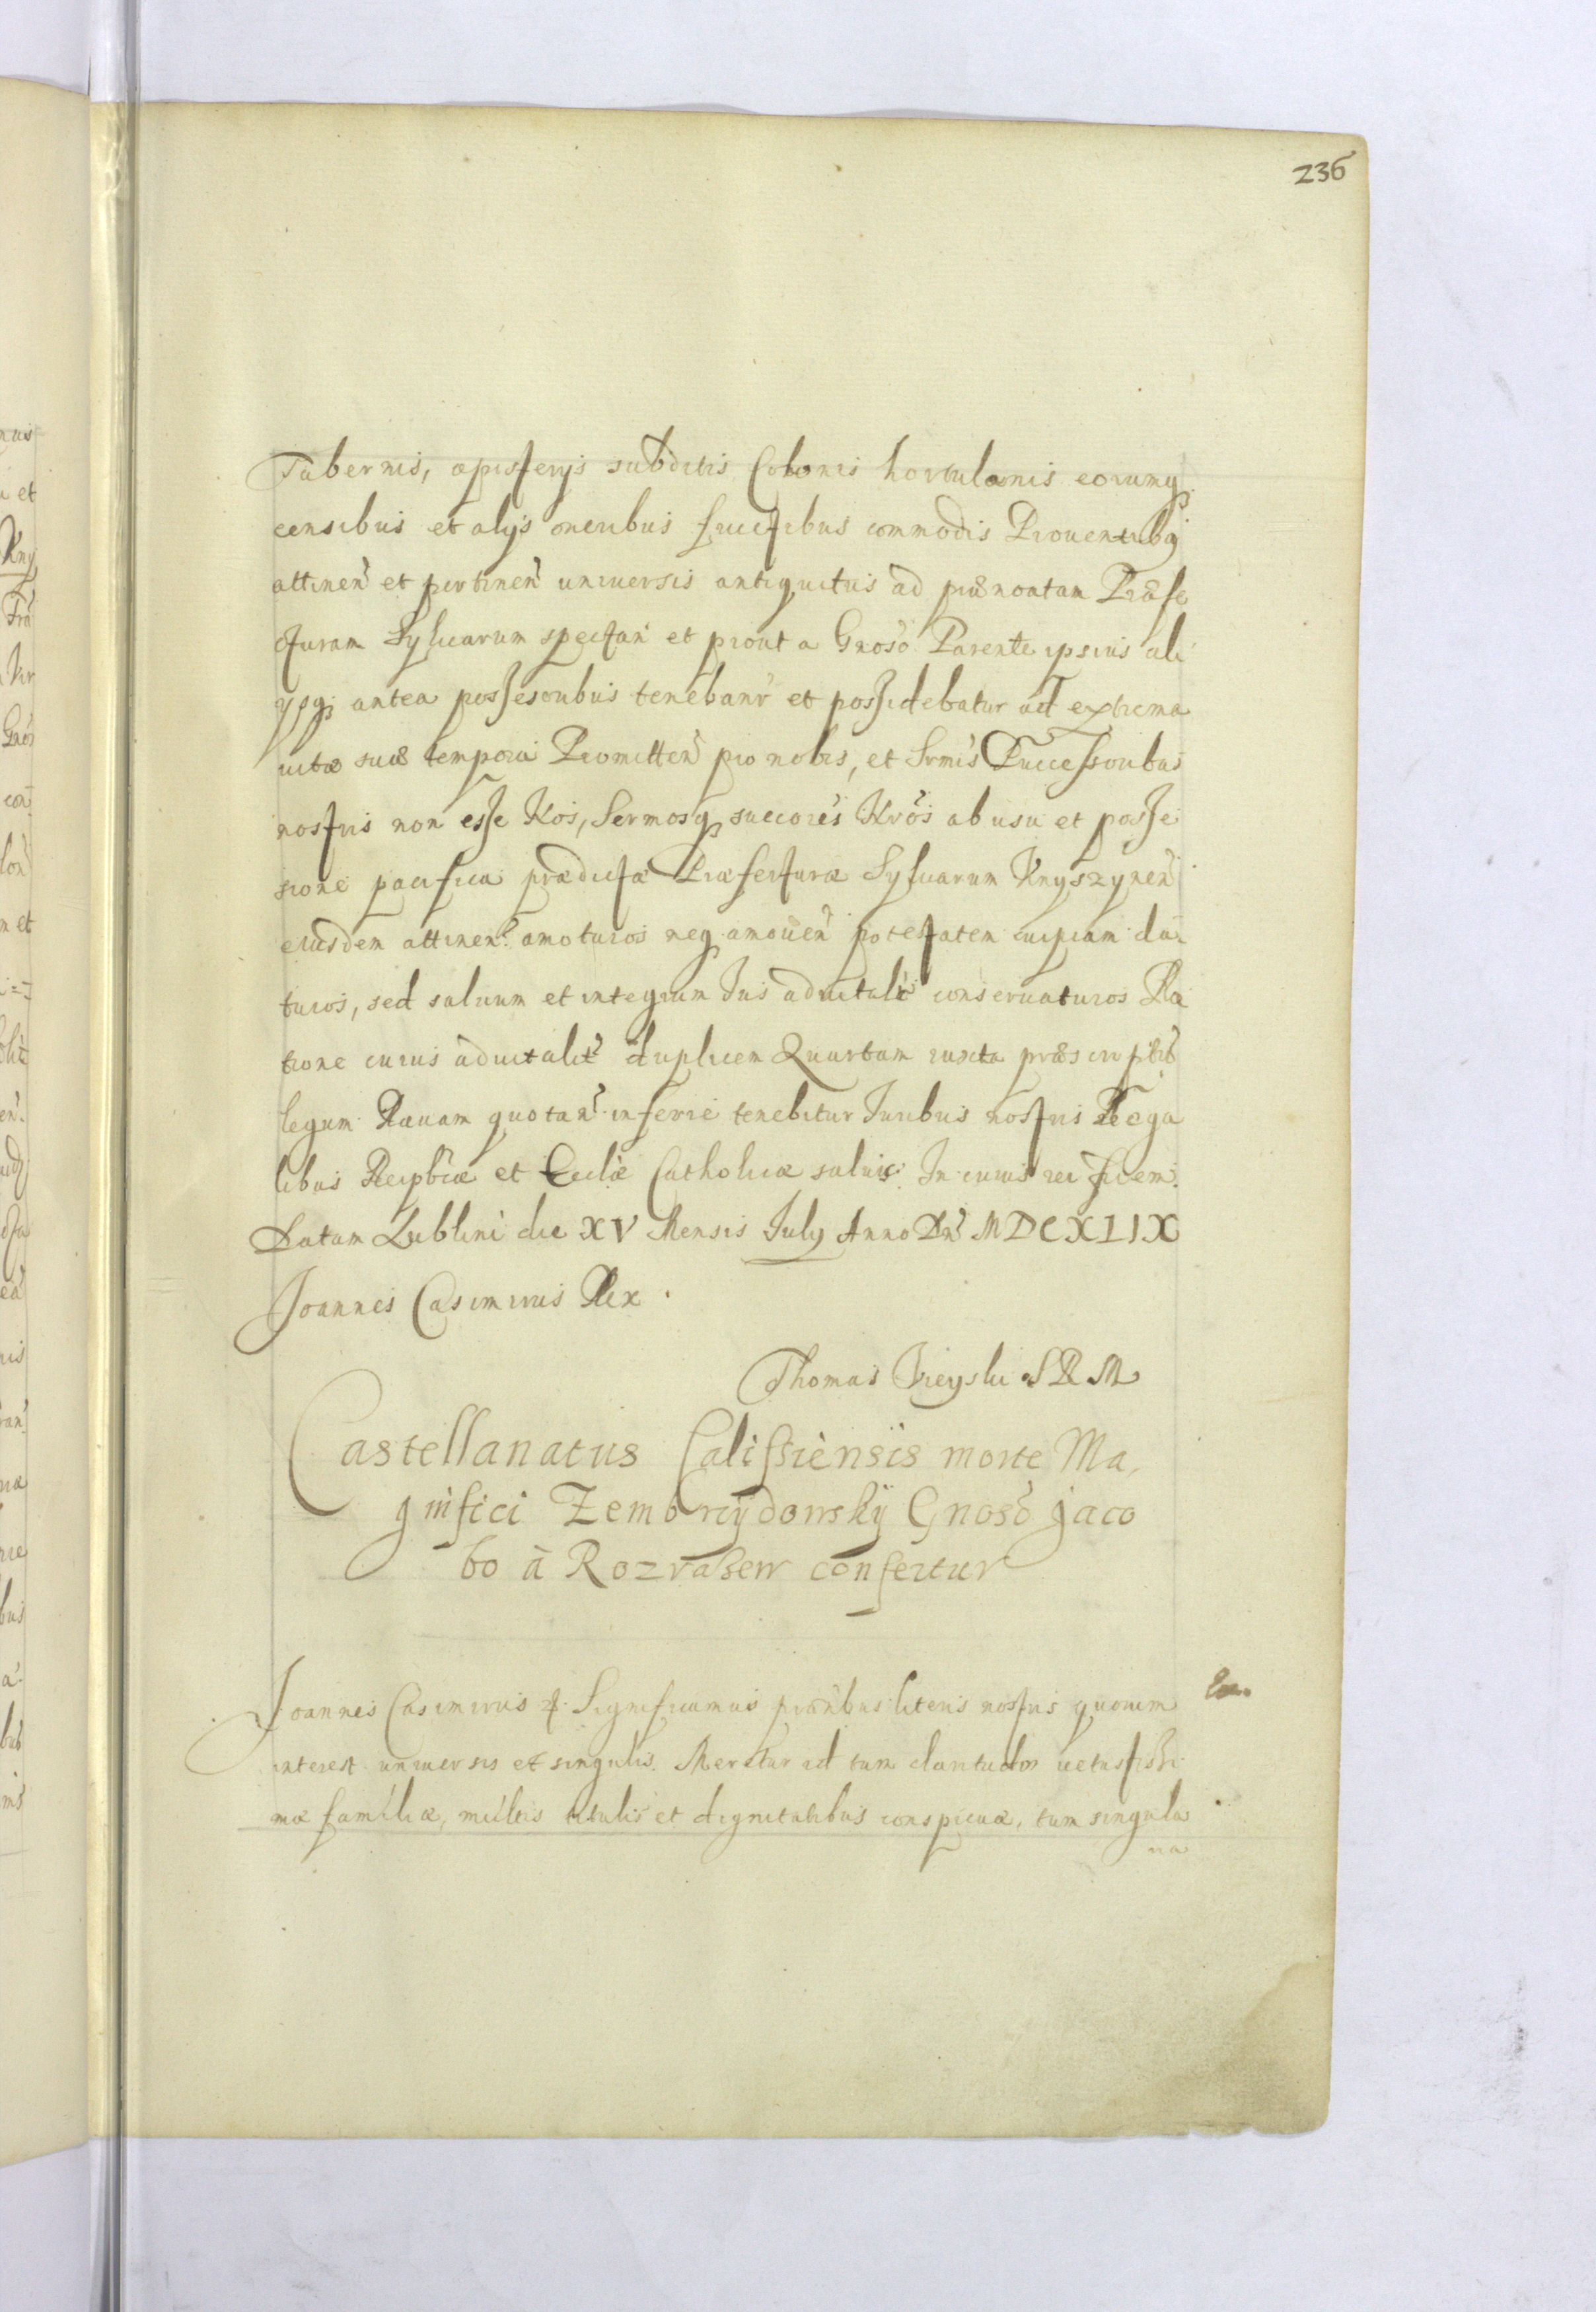 236
Tabernis, apisterijs subditis Colonis hortulanis eorumq3
censibus et alijs oneribus fructibus commodis Prouentibq3
attinen̄ et pertinen̄ uniuersis antiquitus ad prænoatam Præfe
cturam Sylvarum spectan̄ et prout a Gnoso Parente ipsius ali
ysq3 antea possesoribus tenebant̄r et possidebatur ad extrema
uitæ suæ tempora Promitten̄ pro nobis, et Srmis Successoribus
nostris non esse Nos, Sermosq3 succores Nrōs ab usu et posse
sione pacifica prædictæ Præfecturæ Syluarum Knyszynen̄
eiusdem attinen̄. amoturos neq3 amouen̄ potestatem cuipiam da
turos, sed saluum et integrum Jus aduitale conseruaturos Ra
tione cuius aduitalit̄ duplicem Quartam iuxta præscriptū
legum Rauam quotan̄. inferre tenebitur Juribus nostris Rega
libus Reipbcæ et Ecclæ Catholicæ saluis. In cuius rei fidem.
Datum Lublini die XV Mensis July Anno Dn̄i MDCXLIX
Joannes Casimirus Rex.
Thomas SRM
Castellanatus Calissiensis morte Ma,
gnifici Zembrzydowskÿ Gnosō jaco
bo à Rozrażew confertur
Joannes Casimirus Significamus præn̄tibus literis nostris quorum
interest uniuersis et singulis. Meretur id tum claritudo uetustissi
mæ familiæ, multis titulis et dignitatibus conspicuæ, tum singula
ria